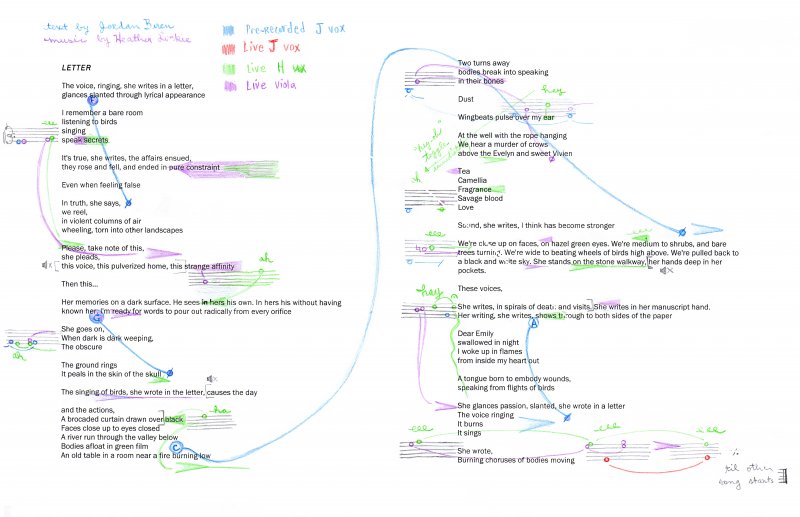 text by Jordan
music by Heather
Pre-recorded J vox
Live J vox
Live H vox
Live viola
LETTER
The voice, ringing, she writes in a letter,
glances slanted through lyrical appearance
F
I remember a bare room
listening to birds
singing
speak secrets.
It's true, she writes, the affairs ensued,
they rose and fell, and ended in pure constraint
Even when feeling false
In truth, she says,
we reel,
in violent columns of air
wheeling, torn into other landscapes
Please, take note of this,
she pleads,
this voice, this pulverized home, this strange affinity
ah
Then this...
Her memories on a dark surface. He sees in hers his own. In hers his without having
known her. I'm ready for words to pour out radically from every orifice
G
She goes on,
When dark is dark weeping,
The obscure
ah
The ground rings
It peals in the skin of the skull
The singing of birds, she wrote in the letter, causes the day
and the actions,
A brocaded curtain drawn over black
ha
Faces close up to eyes closed
A river run through the valley below
Bodies afloat in green film
C
An old table in a room near a fire burning low
Two turns away
bodies break into speaking
in their bones
hey
Dust
Wingbeats pulse over my ear
At the well with the rope hanging
We hear a murder of crows
above the Evelyn and sweet Vivien
Tea
Camellia
Fragrance
Savage blood
Love
Sound, she writes, I think has become stronger
eee
We're close up on faces, on hazel green eyes. We're medium to shrubs, and bare
trees turning. We're wide to beating wheels of birds high above. We're pulled back to
a black and white sky. She stands on the stone walkway, her hands deep in her
pockets.
These voices,
hey
She writes, in spirals of death and visits. She writes in her manuscript hand.
Her writing, she writes, shows through to both sides of the paper
A
Dear Emily
swallowed in night
I woke up in flames
from inside my heart out
A tongue born to embody wounds,
speaking from flights of birds
She glances passion, slanted, she wrote in a letter
The voice ringing
It burns
It sings
eee
eee
eee
She wrote,
Burning choruses of bodies moving
til other
song starts